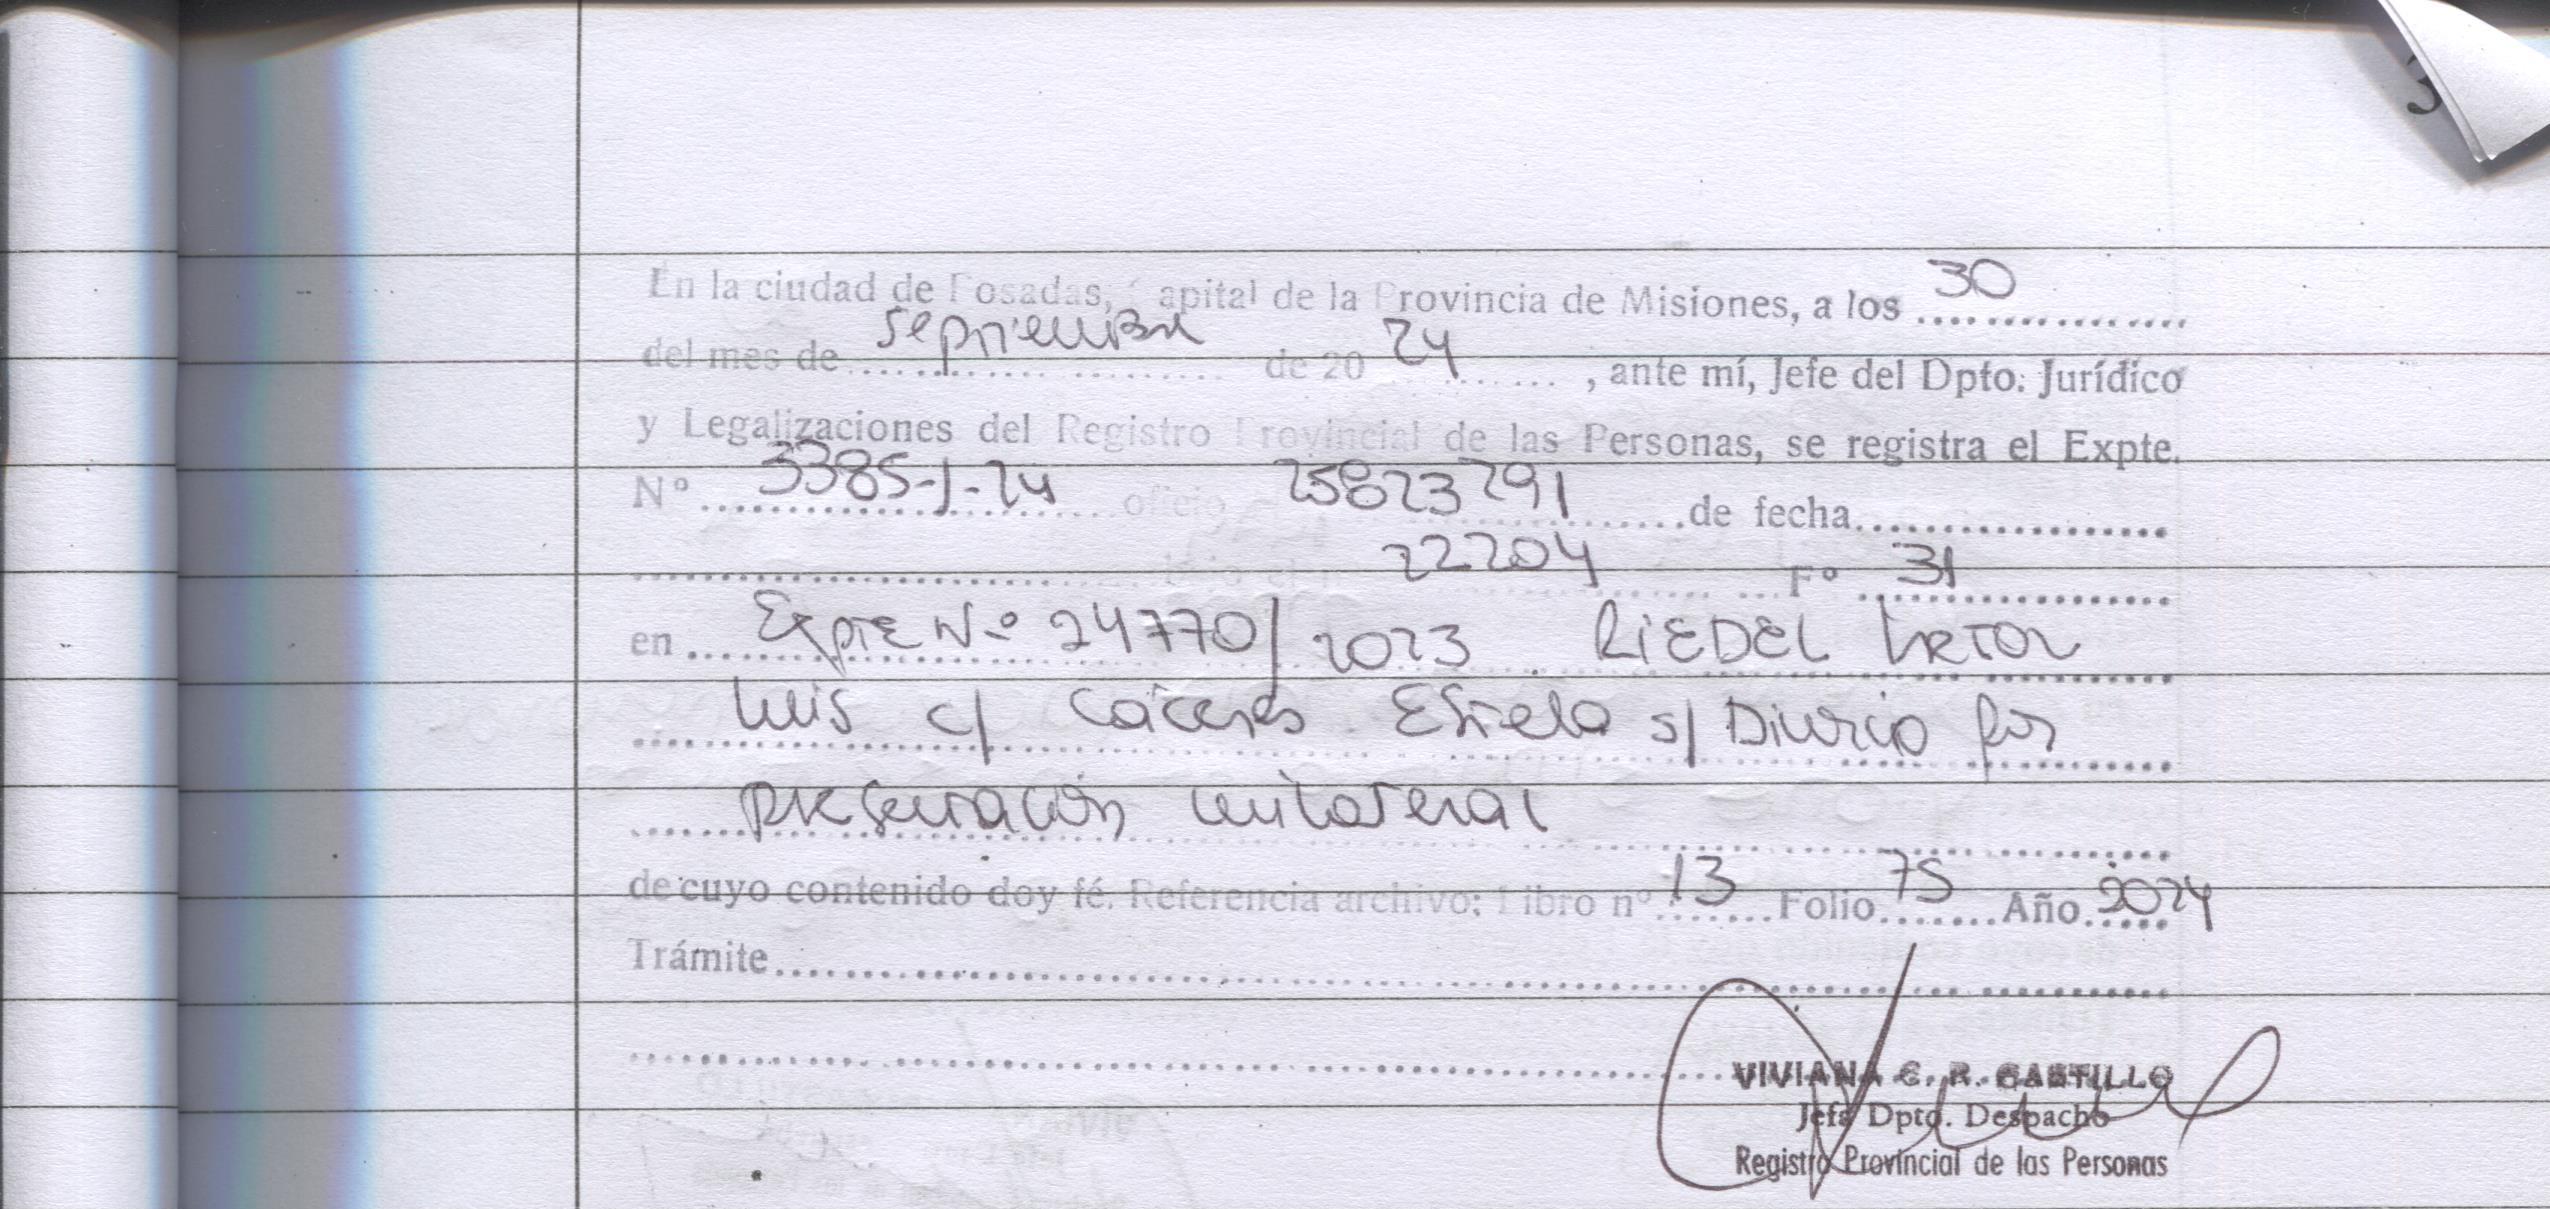 3
En la ciudad de Posadas, Capital de la Provincia de Misiones, a los 30
del mes de septiembre de 20 24, ante mí, Jefe del Dpto. Jurídico
y Legalizaciones del Registro Provincial de las Personas, se registra el Expte.
Nº 3385-J-24 oficio 25823291 de fecha
22204 Fº 31
en Expte Nº 24770/2023 RIEDEL VICTOR
Luis c/ Cáceres Estela s/ Divorcio por
presentación unilateral
de cuyo contenido doy fé. Referencia archivo: Libro nº 13 Folio 75 Año 2024
Trámite
VIVIANA C. R. CASTILLO
Jefa Dpto. Despacho
Registro Provincial de las Personas